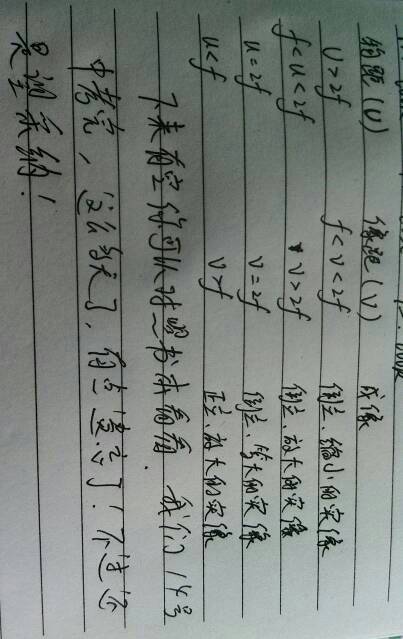 物距(U) 像距(V) 成像
U>2f f<V<2f 倒立、缩小的实像
f<U<2f V>2f 倒立、放大的实像
U=2f V=2f 倒立、等大的实像
U<f V>f 正立、放大的实像
下来有空你可以对照书本看看. 我们14号
中考完, 这么多天了, 有点遗忘了! 不过还
是望采纳!